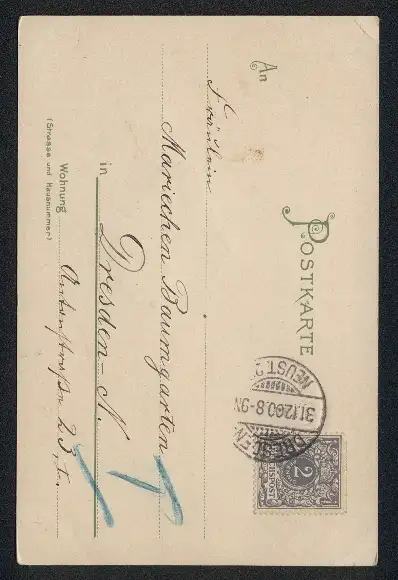 POSTKARTE
An
Fräulein
Mariechen Baumgarten
in Dresden-N.
Wohnung
(Strasse und Hausnummer)
23, I.
DRESDEN
NEUST.
31.12.00.8-9N
2
REICHSPOST